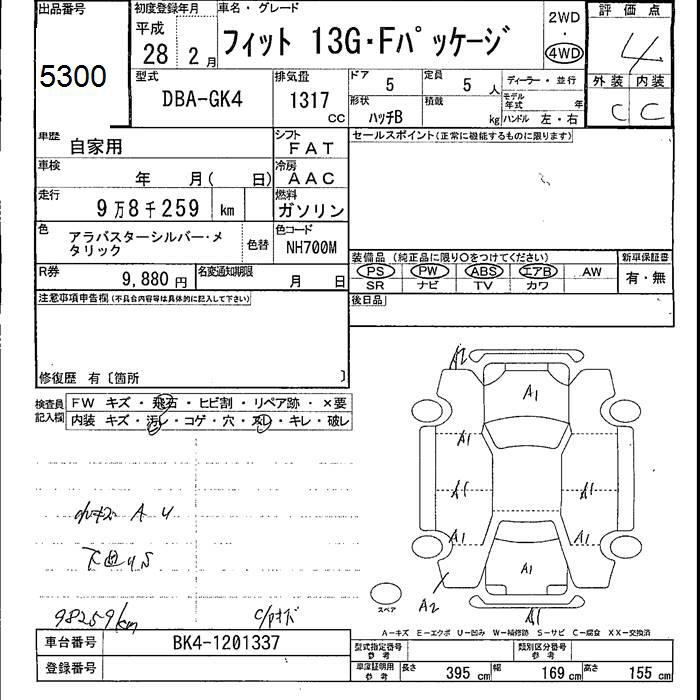 出品番号
5300
初度登録年月
平成
28 2月
車名・グレード
フィット 13G・Fパッケージ
2WD
・
4WD
評価点
4
外装 内装
C C
型式
DBA-GK4
排気量
1317
CC
ドア 5
定員 5人
ディーラー・並行
形状 ハッチB
積載 kg
モデル年式 年
ハンドル 左・右
車歴 自家用
シフト FAT
セールスポイント(正常に機能するものに限ります)
車検 年 月( 日)
冷房 AAC
走行 9万8千259 km
燃料 ガソリン
色 アラバスターシルバー・メタリック
色替
色コード NH700M
装備品 (純正品に限り○をつけてください)
新車保証書
PS PW ABS エアB AW
SR ナビ TV カワ
有・無
R券 9,880円
名変通知期限 月 日
後日品
注意事項申告欄(不具合内容等は具体的に記入して下さい)
修復歴 有〔箇所 〕
検査員記入欄
FW キズ・飛石・ヒビ割・リペア跡・×要
内装 キズ・汚レ・コゲ・穴・スレ・キレ・破レ
小キズ A U
下回りS
98259km
A2
A1
A1
A1
A1
A1
A1
A1
A1
A2
A1
スペア
A-キズ E-エクボ U-凹み W-補修跡 S-サビ C-腐食 XX-交換済
車台番号 BK4-1201337
登録番号
型式指定番号 参考
類別区分番号 参考
車庫証明用 参考
長さ 395 cm
幅 169 cm
高さ 155 cm